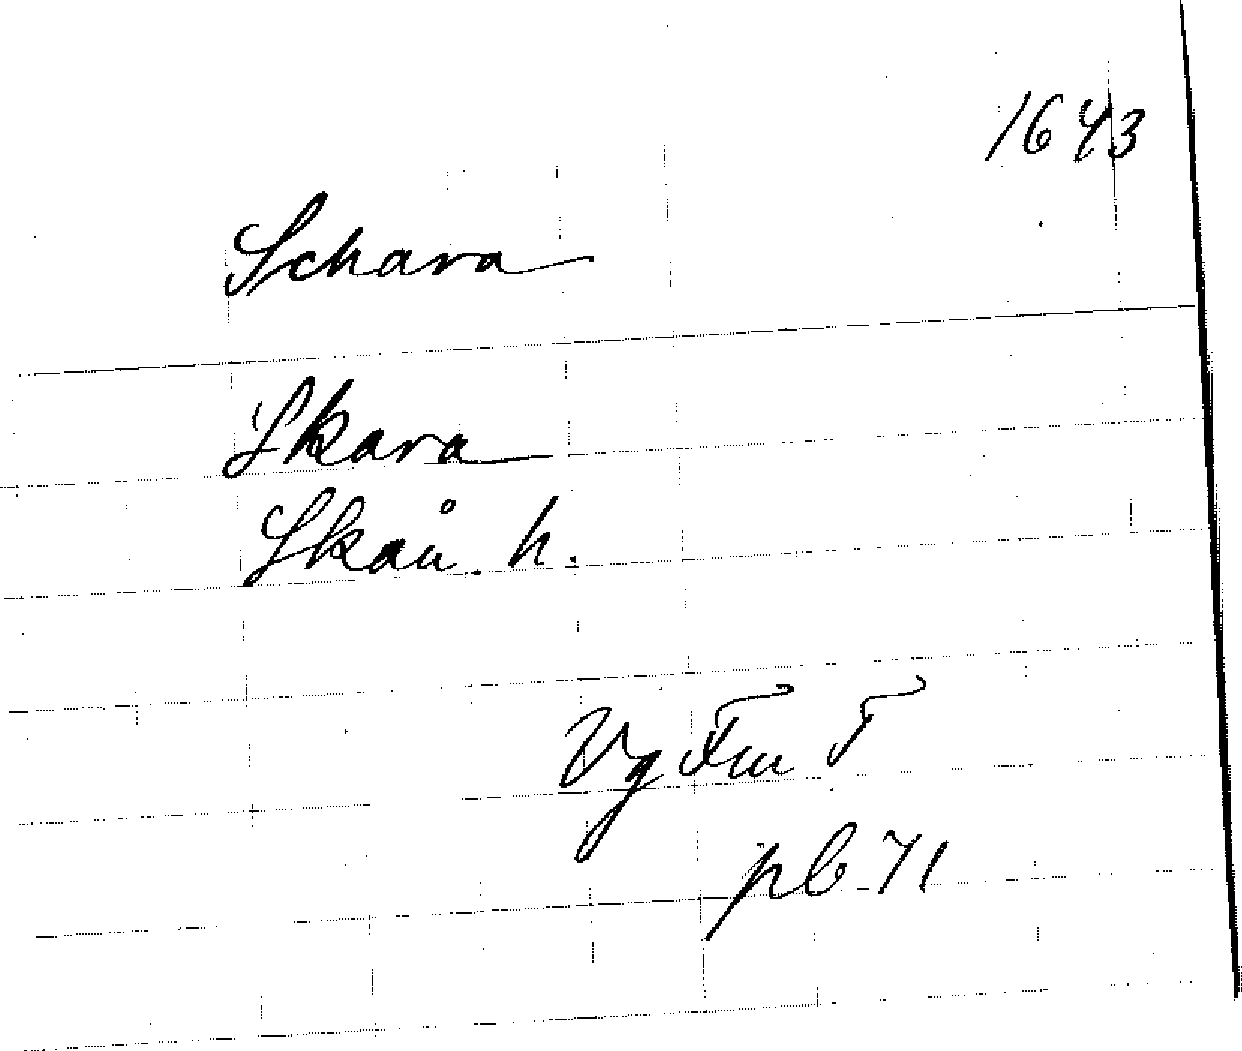 1643
Schara
Skara
Skån. h.
Vg Fm F
pb 71